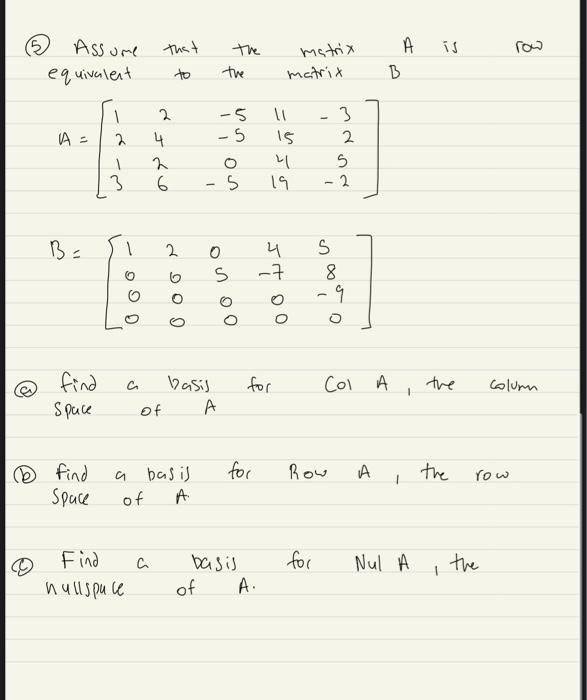 ⑤ Assume that the matrix A is row
equivalent to the matrix B
A = [ 1 2 -5 11 -3
2 4 -5 15 2
1 2 0 4 5
3 6 -5 19 -2 ]
B = [ 1 2 0 4 5
0 0 5 -7 8
0 0 0 0 -9
0 0 0 0 0 ]
ⓐ find a basis for Col A, the column
space of A
ⓑ find a basis for Row A, the row
space of A.
ⓒ Find a basis for Nul A, the
nullspace of A.